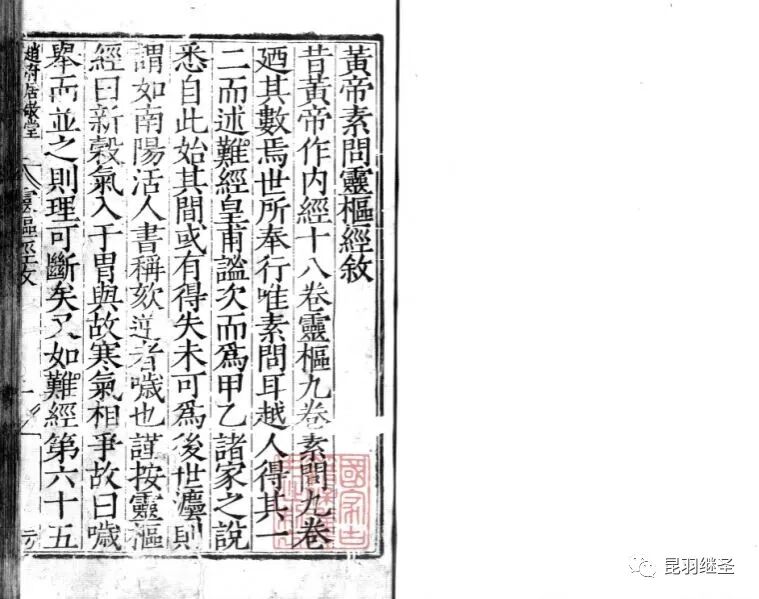 黃帝素問靈樞經敘
昔黃帝作內經十八卷靈樞九卷素問九卷
廼其數焉世所奉行唯素問耳越人得其一
二而述難經皇甫謐次而為甲乙諸家之說
悉自此始其間或有得失未可為後世灋則
謂如南陽活人書稱欬逆者噦也謹按靈樞
經曰新穀氣入于胃與故寒氣相爭故曰噦
舉而並之則理可斷矣又如難經第六十五
趙府居敬堂
靈樞經文
昆羽继圣